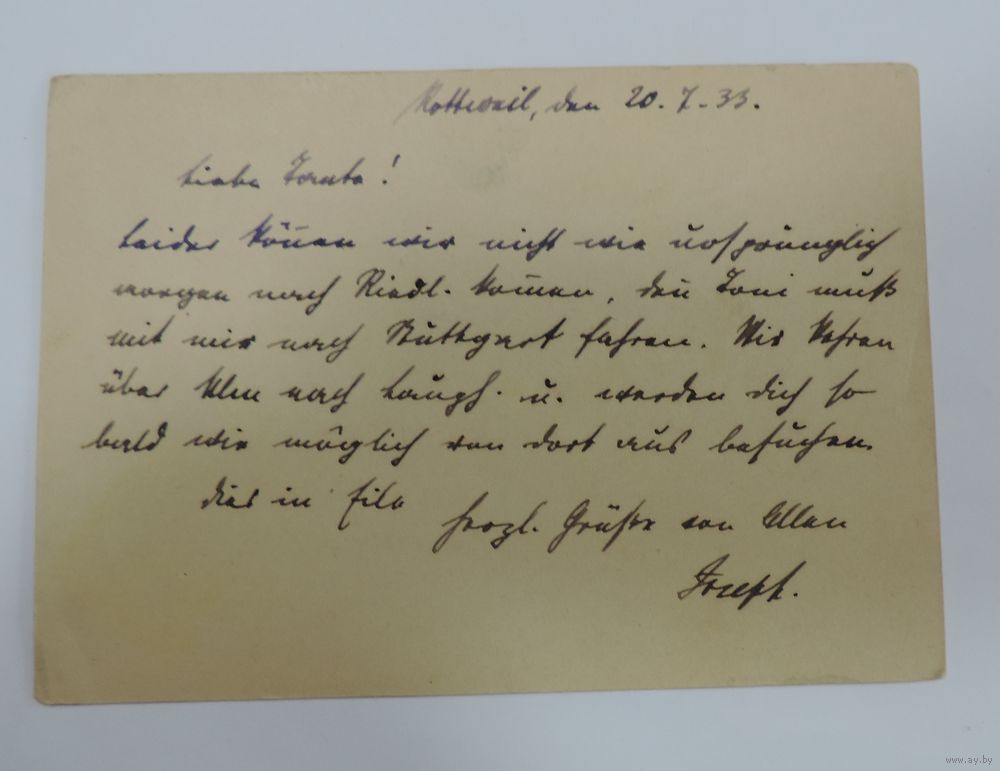 Rottweil, den 20.7.33.
Liebe Tante!
Leider können wir nicht wie ursprünglich
morgen nach Riedl. kommen, den Toni muß
mit mir nach Stuttgart fahren. Wir kehren
über Ulm nach Laugh. u. werden dich so
bald wie möglich von dort aus besuchen.
Dies in Eile
Herzl. Grüße von Allen
Joseph.
www.ay.by